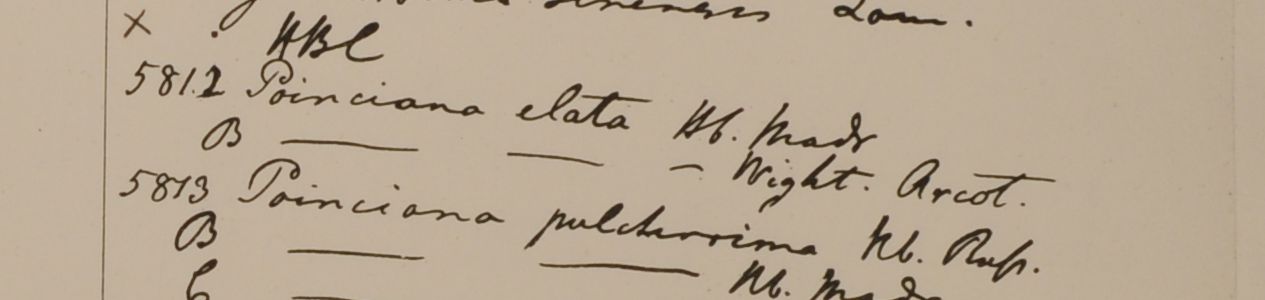 sinensis Lour.
× HBC
5812 Poinciana elata Hb. Madr
B — — – Wight. Arcot.
5813 Poinciana pulcherrima Hb. Russ.
B — — Hb. Madr
C —